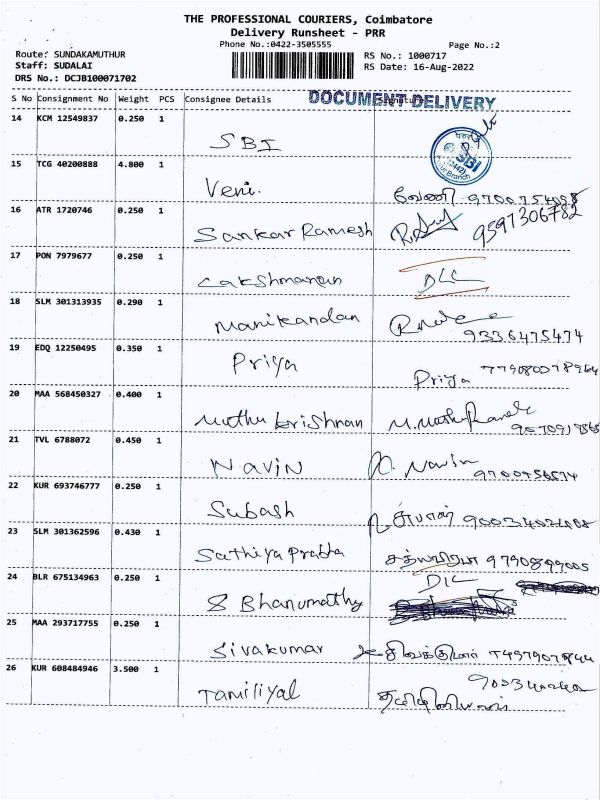 THE PROFESSIONAL COURIERS, Coimbatore
Delivery Runsheet - PRR
Phone No.:0422-3505555 Page No.:2
Route: SUNDAKAMUTHUR RS No.: 1000717
Staff: SUDALAI RS Date: 16-Aug-2022
DRS No.: DCJB100071702
S No Consignment No Weight PCS Consignee Details DOCUMENT DELIVERY
14 KCM 12549837 0.250 1 SBI SBI
15 TCG 40200888 4.800 1 Veni. வேணி
16 ATR 1720746 0.250 1 Sankar Ramesh 9597306782
17 PON 7979677 0.250 1 Lakshmanan DLC
18 SLM 301313935 0.290 1 Manikandan 9336475474
19 EDQ 12250495 0.350 1 Priya Priya
20 MAA 568450327 0.400 1 Muthu krishnan
21 TVL 6788072 0.450 1 Navin Navin
22 KUR 693746777 0.250 1 Subash
23 SLM 301362596 0.430 1 Sathiya Prabha 9790899005
24 BLR 675134963 0.250 1 S Bhanumathy
25 MAA 293717755 0.250 1 Sivakumar
26 KUR 608484946 3.500 1 Tamiliyal